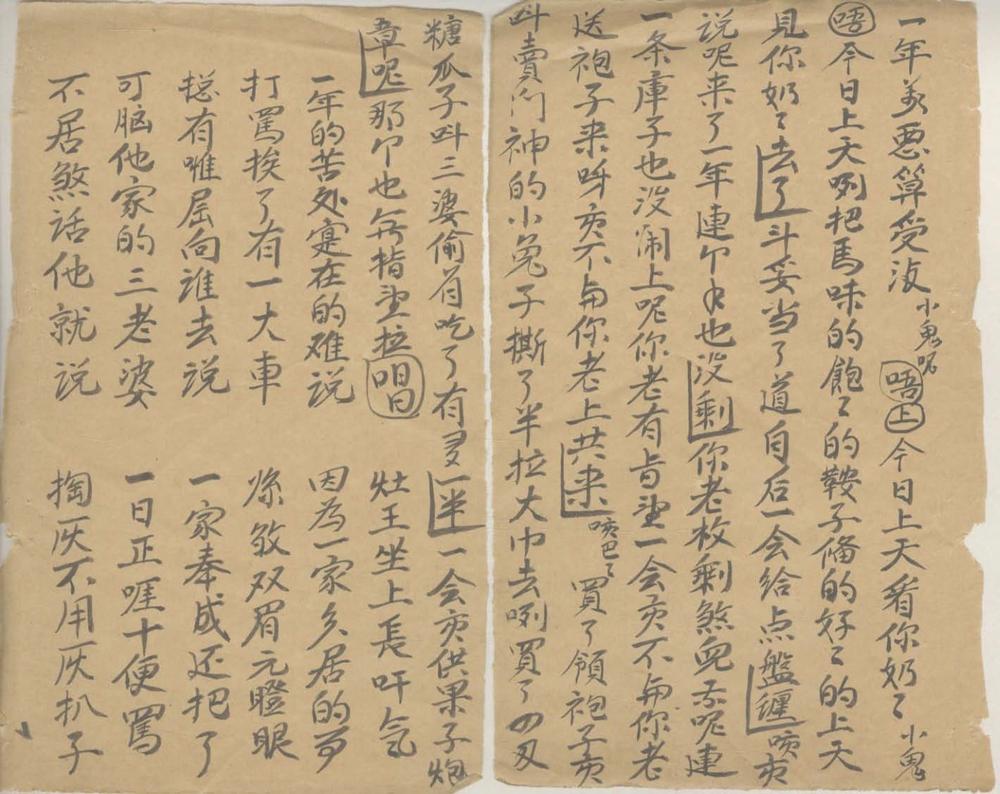 一年美恶算受没 小鬼咒 唔上 今日上天看你奶〻 小鬼
唔 今日上天咧把馬味的飽〻的鞍子俻的好〻的上天
見你奶〻去了斗妥当了道自后一会给点盤缠咳
说呢来了一年連个也没剩你老枚剩煞呢連
一条庫子也没闹上呢你老有旨望一会不与你老
送袍子来呀不与你老上共来 咳巴了 買了領袍子
叫賣门神的小兔子撕了半拉大巾去咧買了四叉
糖瓜子叫三婆偷着吃了有多一半一会供果子炮
章呢那个也無指望拉 唱曰 灶王坐上長吁气
一年的苦处寔在的难说 因為一家久居的
打罵挨了有一大車 双眉元瞪眼
捴有唯屈向誰去说 一家奉成还把了
可脑他家的三老婆 一日正啀十便罵
不居煞话他就说 掏灰不用灰扒子